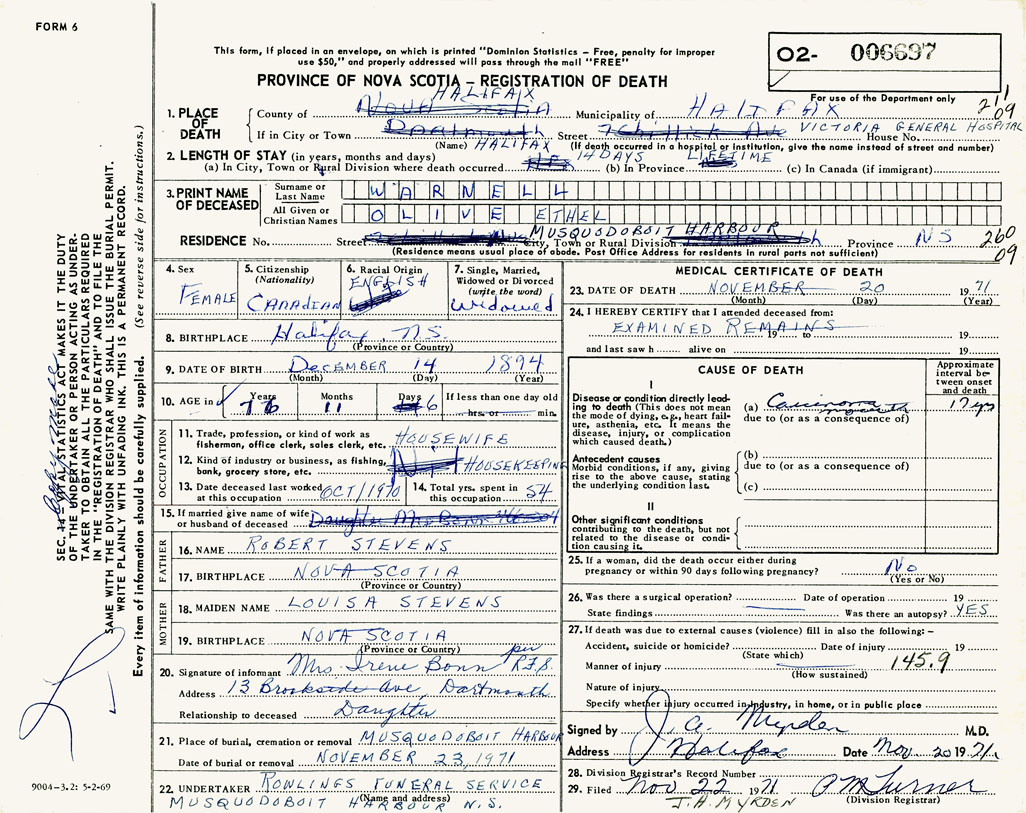 FORM 6
This form, if placed in an envelope, on which is printed "Dominion Statistics – Free, penalty for improper
use $50," and properly addressed will pass through the mail "FREE"
02- 006697
For use of the Department only
PROVINCE OF NOVA SCOTIA – REGISTRATION OF DEATH
211
09
1. PLACE OF DEATH
HALIFAX
County of Nova Scotia Municipality of HALIFAX
If in City or Town Dartmouth Street VICTORIA GENERAL HOSPITAL House No.
(Name) HALIFAX (If death occurred in a hospital or institution, give the name instead of street and number)
2. LENGTH OF STAY (in years, months and days)
(a) In City, Town or Rural Division where death occurred 14 DAYS (b) In Province LIFETIME (c) In Canada (if immigrant)
3. PRINT NAME OF DECEASED
Surname or Last Name WARNELL
All Given or Christian Names OLIVE ETHEL
RESIDENCE No. Street City, Town or Rural Division MUSQUODOBOIT HARBOUR Province NS 260
09
(Residence means usual place of abode. Post Office Address for residents in rural parts not sufficient)
4. Sex
FEMALE
5. Citizenship
(Nationality)
CANADIAN
6. Racial Origin
ENGLISH
7. Single, Married,
Widowed or Divorced
(write the word)
Widowed
8. BIRTHPLACE Halifax, N.S.
(Province or Country)
9. DATE OF BIRTH DECEMBER 14 1894
(Month) (Day) (Year)
10. AGE in Years Months Days If less than one day old
76 11 6 hrs. or min.
OCCUPATION
11. Trade, profession, or kind of work as
fisherman, office clerk, sales clerk, etc. HOUSEWIFE
12. Kind of industry or business, as fishing,
bank, grocery store, etc. HOUSEKEEPING
13. Date deceased last worked
at this occupation OCT/1970
14. Total yrs. spent in
this occupation 54
15. If married give name of wife
or husband of deceased
FATHER
16. NAME ROBERT STEVENS
17. BIRTHPLACE NOVA SCOTIA
(Province or Country)
MOTHER
18. MAIDEN NAME LOUISA STEVENS
19. BIRTHPLACE NOVA SCOTIA
(Province or Country)
20. Signature of informant Mrs. Irene Bonn per R.F.S.
Address 13 Brookside Ave, Dartmouth
Relationship to deceased Daughter
21. Place of burial, cremation or removal MUSQUODOBOIT HARBOUR
Date of burial or removal NOVEMBER 23, 1971
22. UNDERTAKER ROWLINGS FUNERAL SERVICE
(Name and address)
MUSQUODOBOIT HARBOUR N.S.
MEDICAL CERTIFICATE OF DEATH
23. DATE OF DEATH NOVEMBER 20 1971
(Month) (Day) (Year)
24. I HEREBY CERTIFY that I attended deceased from:
EXAMINED REMAINS
19 to 19
and last saw h alive on 19
CAUSE OF DEATH
Approximate
interval be-
tween onset
and death
I
Disease or condition directly lead-
ing to death (This does not mean
the mode of dying, e.g., heart fail-
ure, asthenia, etc. It means the
disease, injury, or complication
which caused death.)
(a) Carcinoma mouth 17 yrs
due to (or as a consequence of)
Antecedent causes
Morbid conditions, if any, giving
rise to the above cause, stating
the underlying condition last.
(b)
due to (or as a consequence of)
(c)
II
Other significant conditions
contributing to the death, but not
related to the disease or condi-
tion causing it.
25. If a woman, did the death occur either during
pregnancy or within 90 days following pregnancy? No
(Yes or No)
26. Was there a surgical operation? Date of operation 19
State findings Was there an autopsy? YES
27. If death was due to external causes (violence) fill in also the following: –
Accident, suicide or homicide? Date of injury 19
(State which)
Manner of injury 145.9
(How sustained)
Nature of injury
Specify whether injury occurred in industry, in home, or in public place
Signed by J. A. Myrden M.D.
Address Halifax Date Nov. 20 1971
28. Division Registrar's Record Number
29. Filed Nov 22 1971
(Division Registrar)
J.H. MYRDEN
SEC. 14 – VITAL STATISTICS ACT MAKES IT THE DUTY
OF THE UNDERTAKER OR PERSON ACTING AS UNDER-
TAKER TO OBTAIN ALL THE PARTICULARS REQUIRED
IN THE "REGISTRATION OF DEATH" AND TO FILE THE
SAME WITH THE DIVISION REGISTRAR WHO SHALL ISSUE THE BURIAL PERMIT.
WRITE PLAINLY WITH UNFADING INK. THIS IS A PERMANENT RECORD.
Every item of information should be carefully supplied. (See reverse side for instructions.)
9004-3.2: 5-2-69